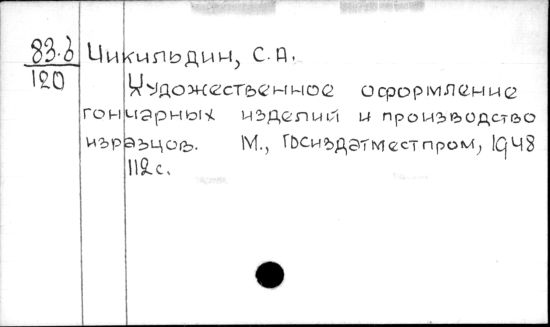 83.б Чикильдин, С.А.
120
Художественное оформление
гончарных изделий и производство
изразцов. М., Госиздатместпром, 1948
112 с.